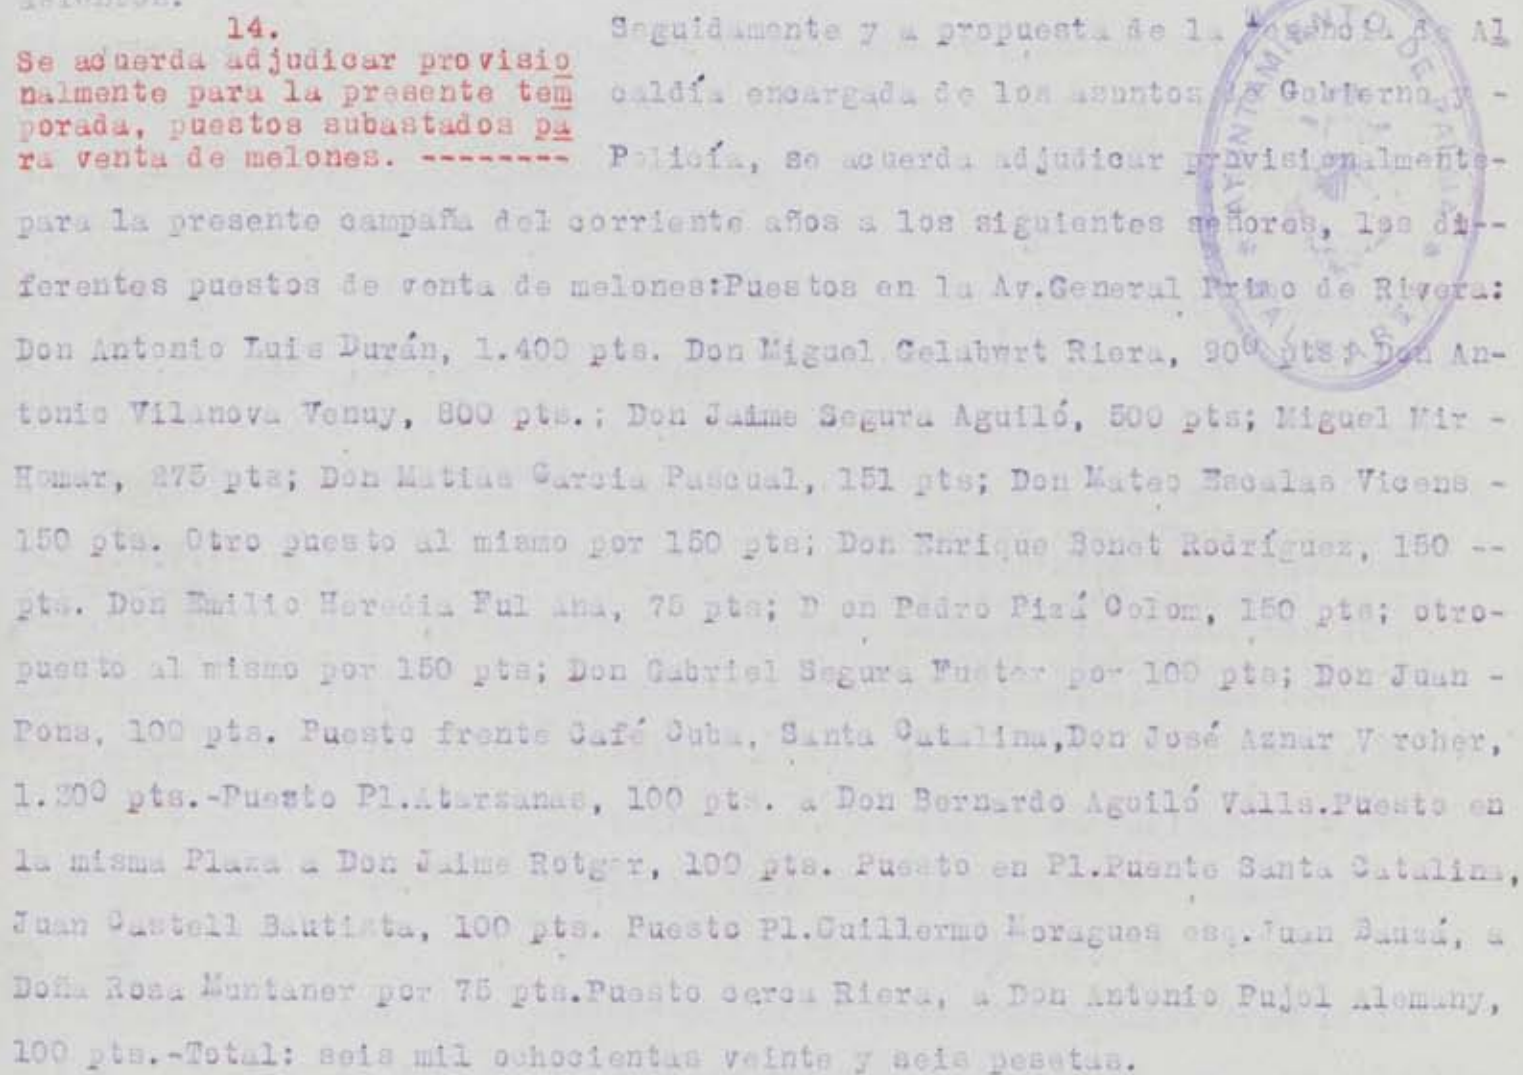 14.
Se acuerda adjudicar provisio
nalmente para la presente tem
porada, puestos subastados pa
ra venta de melones. --------
Seguidamente y a propuesta de la Tenencia de Al
caldía encargada de los asuntos de Gobierno y -
Policía, se acuerda adjudicar provisionalmente-
para la presente campaña del corriente años a los siguientes señores, los di--
ferentes puestos de venta de melones:Puestos en la Av.General Primo de Rivera:
Don Antonio Luis Durán, 1.400 pts. Don Miguel Gelabert Riera, 900 pts; Don An-
tonio Vilanova Venuy, 800 pts.; Don Jaime Segura Aguiló, 500 pts; Miguel Mir -
Homar, 275 pts; Don Matias Garcia Pascual, 151 pts; Don Mateo Escalas Vicens -
150 pts. Otro puesto al mismo por 150 pts; Don Enrique Bonet Rodríguez, 150 --
pts. Don Emilio Heredia Fulana, 75 pts; D on Pedro Pizá Colom, 150 pts; otro-
puesto al mismo por 150 pts; Don Gabriel Segura Fuster por 100 pts; Don Juan -
Pons, 100 pts. Puesto frente Café Cuba, Santa Catalina,Don José Aznar Vercher,
1.300 pts.-Puesto Pl.Atarsanas, 100 pts. a Don Bernardo Aguiló Valls.Puesto en
la misma Plaza a Don Jaime Rotger, 100 pts. Puesto en Pl.Puente Santa Catalina,
Juan Castell Bautista, 100 pts. Puesto Pl.Guillermo Moragues esq.Juan Bauzá, a
Doña Rosa Muntaner por 75 pts.Puesto cerca Riera, a Don Antonio Pujol Alemany,
100 pts.-Total: seis mil ochocientas veinte y seis pesetas.
AYUNTAMIENTO DE PALMA
BALEARES